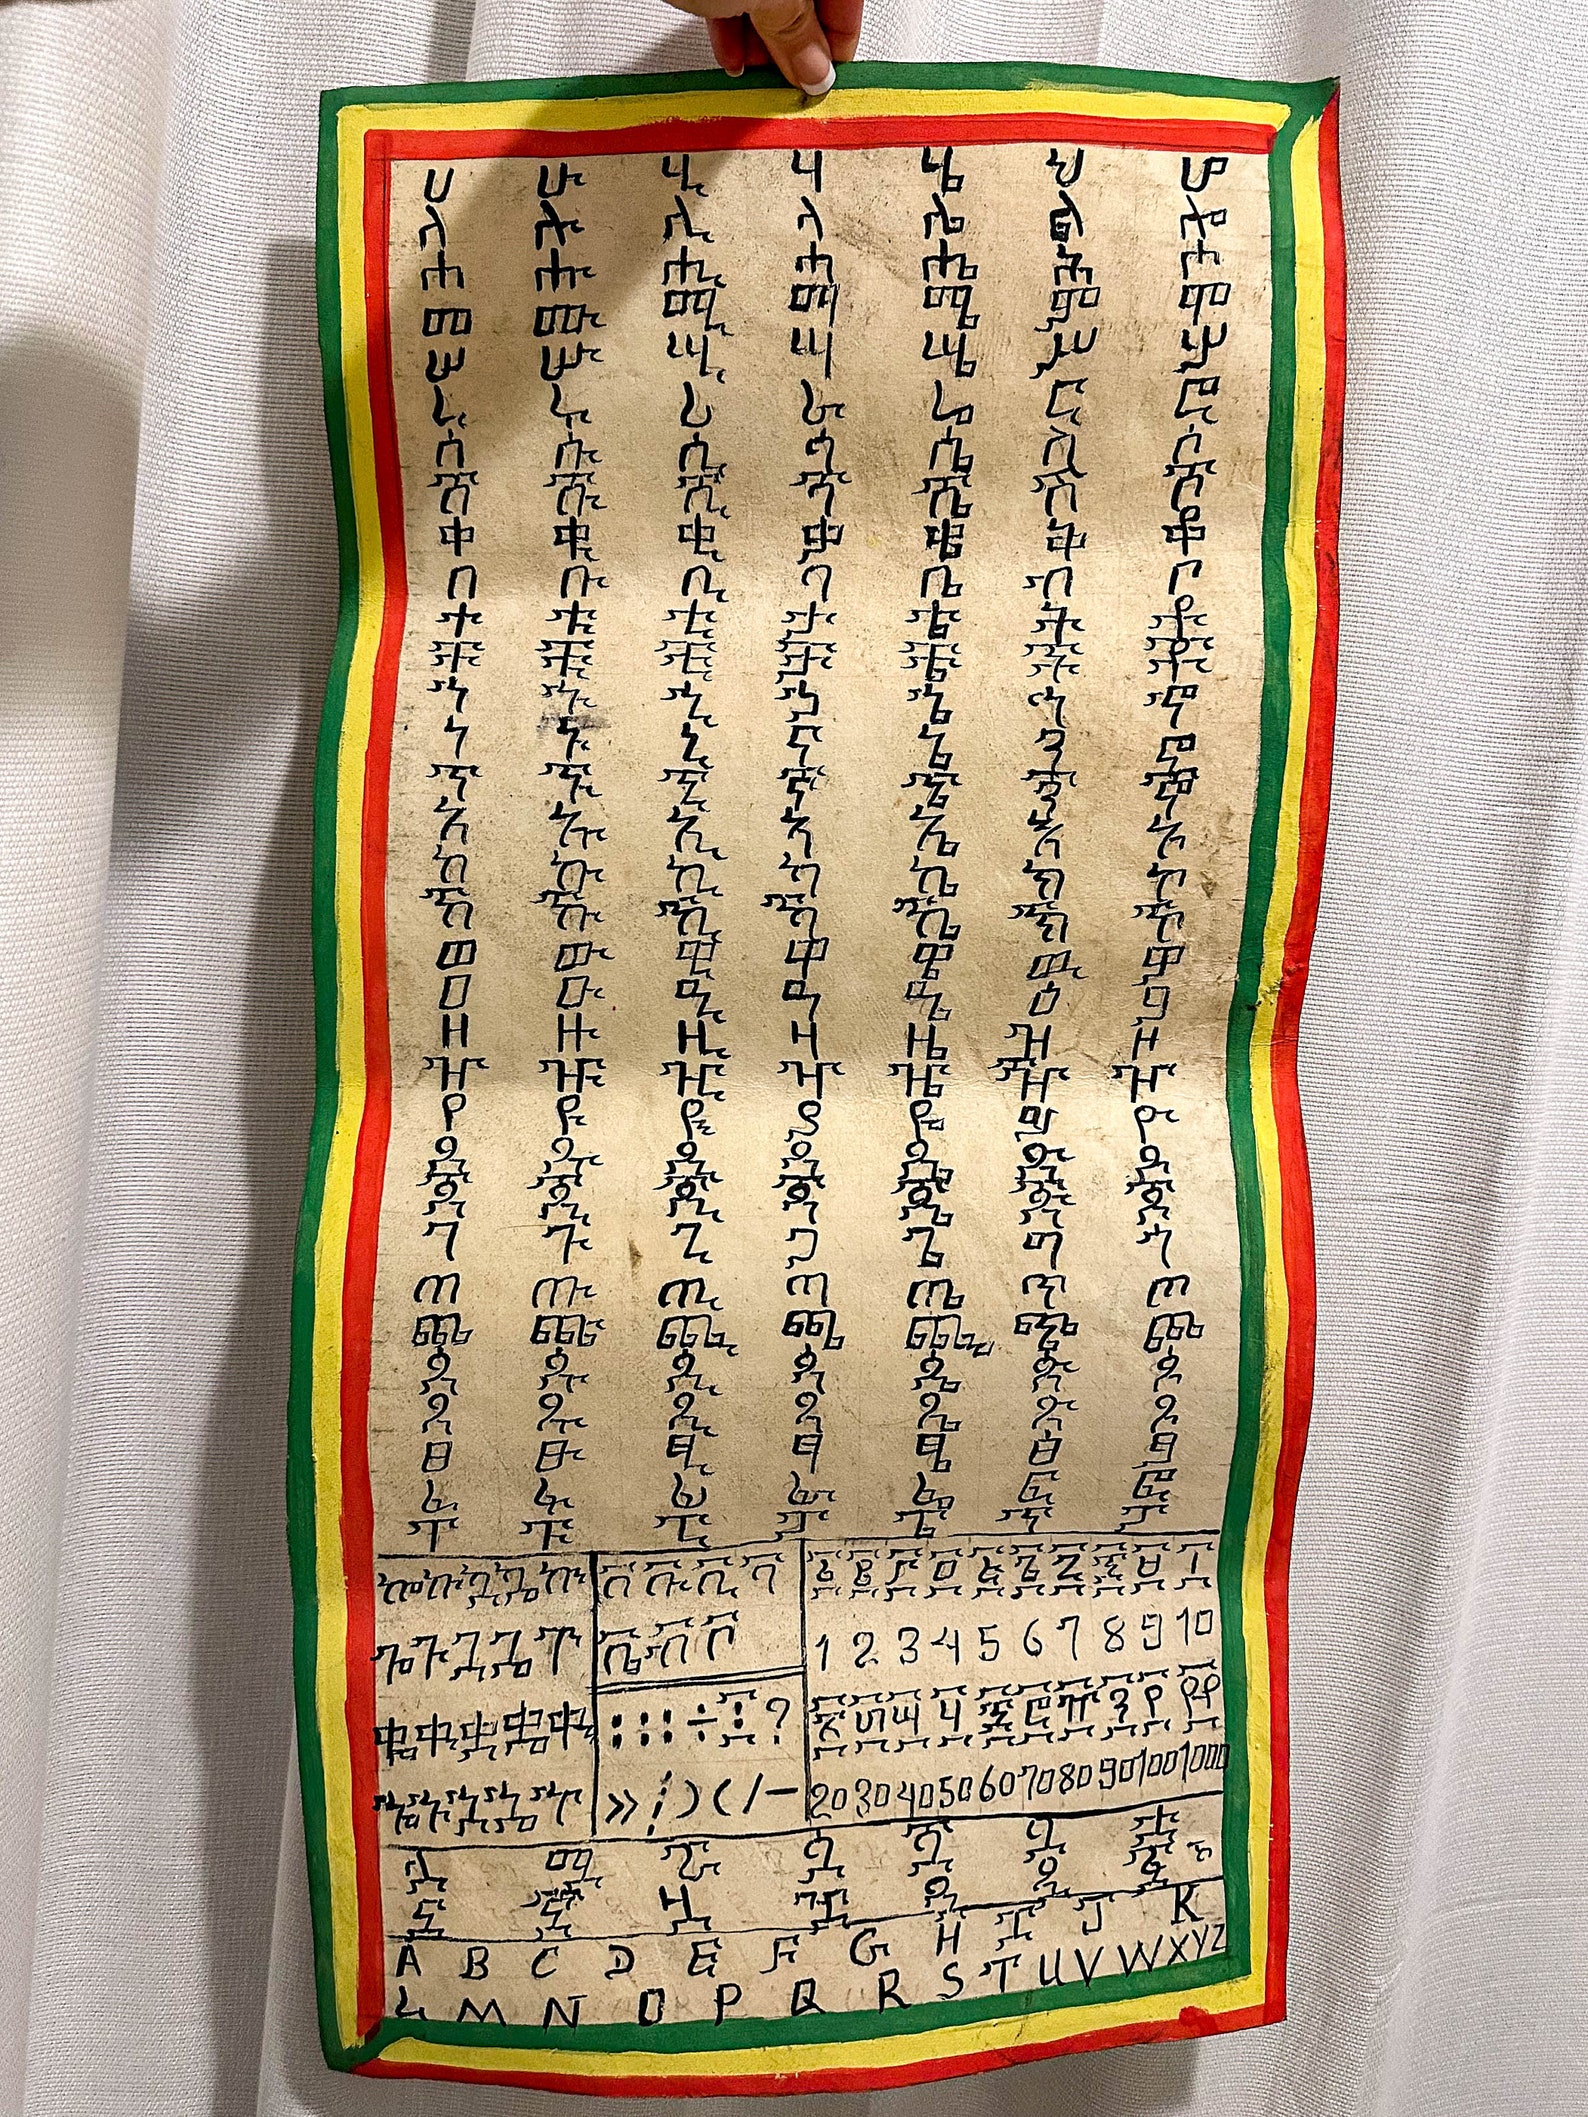 ሀ ሁ ሂ ሃ ሄ ህ ሆ
ለ ሉ ሊ ላ ሌ ል ሎ
ሐ ሑ ሒ ሓ ሔ ሕ ሖ
መ ሙ ሚ ማ ሜ ም ሞ
ሠ ሡ ሢ ሣ ሤ ሥ ሦ
ረ ሩ ሪ ራ ሬ ር ሮ
ሰ ሱ ሲ ሳ ሴ ስ ሶ
ሸ ሹ ሺ ሻ ሼ ሽ ሾ
ቀ ቁ ቂ ቃ ቄ ቅ ቆ
በ ቡ ቢ ባ ቤ ብ ቦ
ተ ቱ ቲ ታ ቴ ት ቶ
ቸ ቹ ቺ ቻ ቼ ች ቾ
ኀ ኁ ኂ ኃ ኄ ኅ ኆ
ነ ኑ ኒ ና ኔ ን ኖ
ኘ ኙ ኚ ኛ ኜ ኝ ኞ
አ ኡ ኢ ኣ ኤ እ ኦ
ከ ኩ ኪ ካ ኬ ክ ኮ
ኸ ኹ ኺ ኻ ኼ ኽ ኾ
ወ ዉ ዊ ዋ ዌ ው ዎ
ዐ ዑ ዒ ዓ ዔ ዕ ዖ
ዘ ዙ ዚ ዛ ዜ ዝ ዞ
ዠ ዡ ዢ ዣ ዤ ዥ ዦ
የ ዩ ዪ ያ ዬ ይ ዮ
ደ ዱ ዲ ዳ ዴ ድ ዶ
ጀ ጁ ጂ ጃ ጄ ጅ ጆ
ገ ጉ ጊ ጋ ጌ ግ ጎ
ጠ ጡ ጢ ጣ ጤ ጥ ጦ
ጨ ጩ ጪ ጫ ጬ ጭ ጮ
ጰ ጱ ጲ ጳ ጴ ጵ ጶ
ጸ ጹ ጺ ጻ ጼ ጽ ጾ
ፀ ፁ ፂ ፃ ፄ ፅ ፆ
ፈ ፉ ፊ ፋ ፌ ፍ ፎ
ፐ ፑ ፒ ፓ ፔ ፕ ፖ
ኰ ኲ ኳ ኴ ኵ
ጐ ጒ ጓ ጔ ጕ
ቈ ቊ ቋ ቌ ቍ
ኈ ኊ ኋ ኌ ኍ
ቨ ቩ ቪ ቫ
ቬ ቭ ቮ
፡ ፡፡ ÷ ፤ ?
» ! ) ( / –
፩ ፪ ፫ ፬ ፭ ፮ ፯ ፰ ፱ ፲
1 2 3 4 5 6 7 8 9 10
፳ ፴ ፵ ፶ ፷ ፸ ፹ ፺ ፻ ፼
20 30 40 50 60 70 80 90 100 1000
A B C D E F G H I J K
L M N O P Q R S T U V W X Y Z